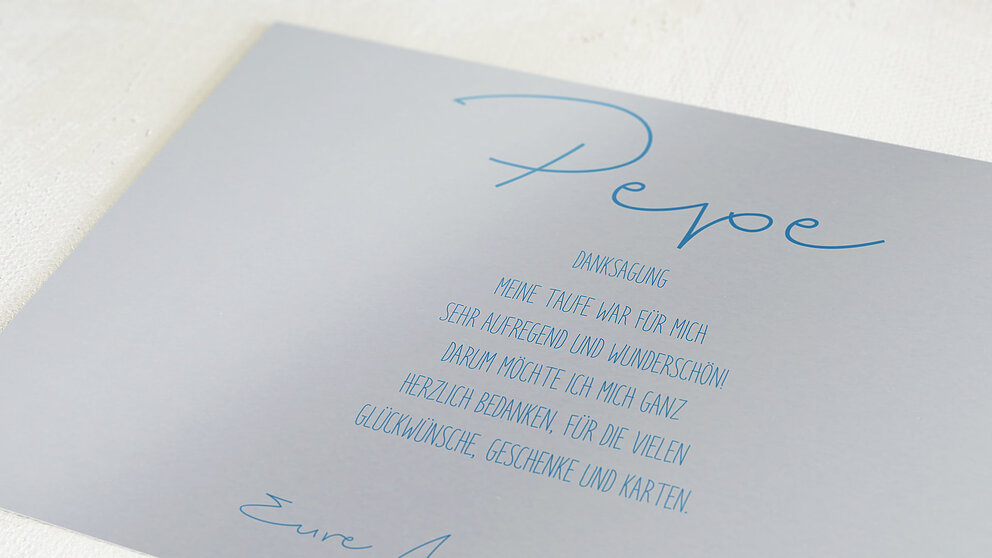 Pepe
DANKSAGUNG
MEINE TAUFE WAR FÜR MICH
SEHR AUFREGEND UND WUNDERSCHÖN!
DARUM MÖCHTE ICH MICH GANZ
HERZLICH BEDANKEN, FÜR DIE VIELEN
GLÜCKWÜNSCHE, GESCHENKE UND KARTEN.
Eure